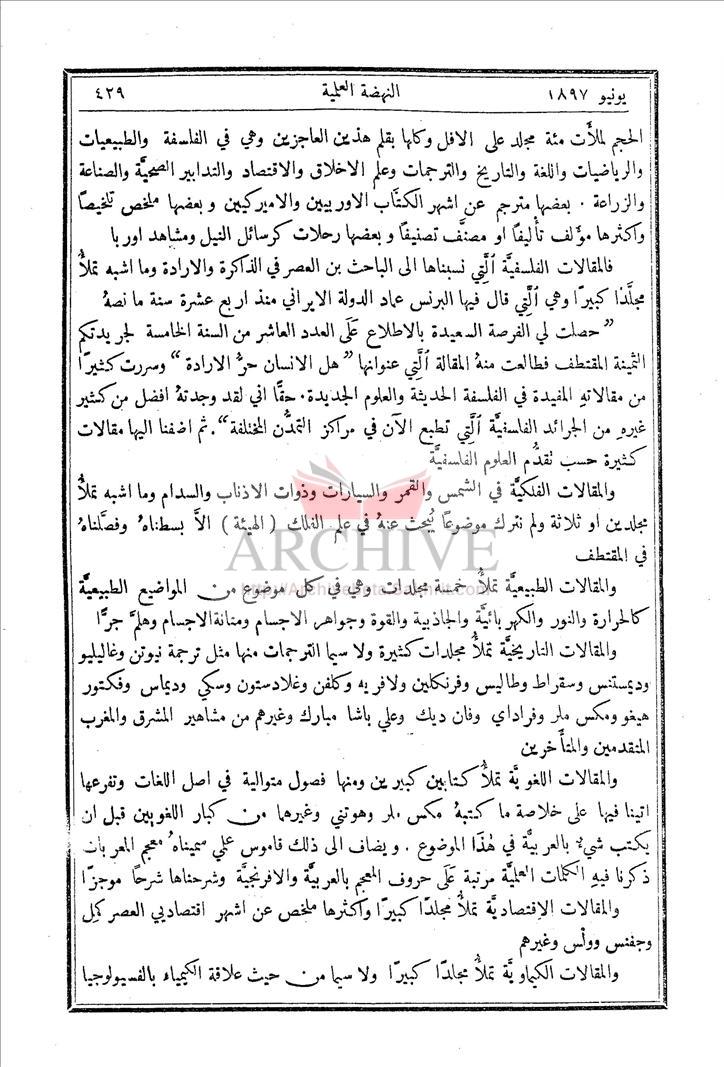 يونيو ١٨٩٧ النهضة العلمية ٤٢٩
الحجم لملأت مئة مجلد على الاقل وكلها بقلم هذين العاجزين وهي في الفلسفة والطبيعيات
والرياضيات واللغة والتاريخ والترجمات وعلم الاخلاق والاقتصاد والتدابير الصحيَّة والصناعة
والزراعة ٠ بعضها مترجم عن اشهر الكتَّاب الاوربيين والاميركيين وبعضها ملخص تلخيصًا
واكثرها مؤلف تأليفًا او مصنَّف تصنيفًا وبعضها رحلات كرسائل النيل ومشاهد اوربا
فالمقالات الفلسفيَّة الَّتي نسبناها الى الباحث بن العصر في الذاكرة والارادة وما اشبه تملأُ
مجلَّدًا كبيرًا وهي الَّتي قال فيها البرنس عماد الدولة الايراني منذ اربع عشرة سنة ما نصهُ
”حصلت لي الفرصة السعيدة بالاطلاع عَلَى العدد العاشر من السنة الخامسة لجريدتكم
الثمينة المقتطف فطالعت منهُ المقالة الَّتي عنوانها ”هل الانسان حرُّ الارادة“ وسررت كثيرًا
من مقالاتهِ المفيدة في الفلسفة الحديثة والعلوم الجديدة٠ حقًا اني لقد وجدتهُ افضل من كثير
غيرهِ من الجرائد الفلسفيَّة الَّتي تطبع الآن في مراكز التمدُّن المختلفة“٠ ثم اضفنا اليها مقالات
كثيرة حسب نقدُّم العلوم الفلسفيَّة
والمقالات الفلكيَّة في الشمس والقمر والسيارات وذوات الاذناب والسدام وما اشبه تملأُ
مجلدين او ثلاثة ولم نترك موضوعًا يُبحث عنهُ في علم الفلك ( الهيئة ) الاَّ بسطناهُ وفصَّلناهُ
في المقتطف
ARCHIVE
والمقالات الطبيعيَّة تملأُ خمسة مجلدات وهي في كل موضوع من المواضيع الطبيعيَّة
كالحرارة والنور والكهربائيَّة والجاذبية والقوة وجواهر الاجسام ومتانة الاجسام وهلمَّ جرًّا
والمقالات التاريخيَّة تملأُ مجلدات كثيرة ولا سيما الترجمات منها مثل ترجمة نيوتن وغاليليو
وديمستنس وسقراط وطاليس وفرنكلين ولافريه وكلفن وغلادستون وسكي وديماس وفكتور
هيغو ومكس ملر وفراداي وفان ديك وعلي باشا مبارك وغيرهم من مشاهير المشرق والمغرب
المتقدمين والمتأخرين
والمقالات اللغوية تملأُ كتابين كبيرين ومنها فصول متوالية في اصل اللغات وتفرعها
اتينا فيها على خلاصة ما كتبهُ مكس ملر وهوتني وغيرهما من كبار اللغويين قبل ان
يكتب شيءٌ بالعربيَّة في هٰذا الموضوع ٠ ويضاف الى ذلك قاموس علمي سميناهُ معجم المعربات
ذكرنا فيهِ الكلمات العلميَّة مرتبة عَلَى حروف المعجم بالعربيَّة والافرنجيَّة وشرحناها شرحًا موجزًا
والمقالات الاقتصاديَّة تملأُ مجلدًا كبيرًا واكثرها ملخص عن اشهر اقتصاديي العصر كمِل
وجفنس وولْس وغيرهم
والمقالات الكيماويَّة تملأُ مجلدًا كبيرًا ولا سيما من حيث علاقة الكيمياء بالفسيولوجيا